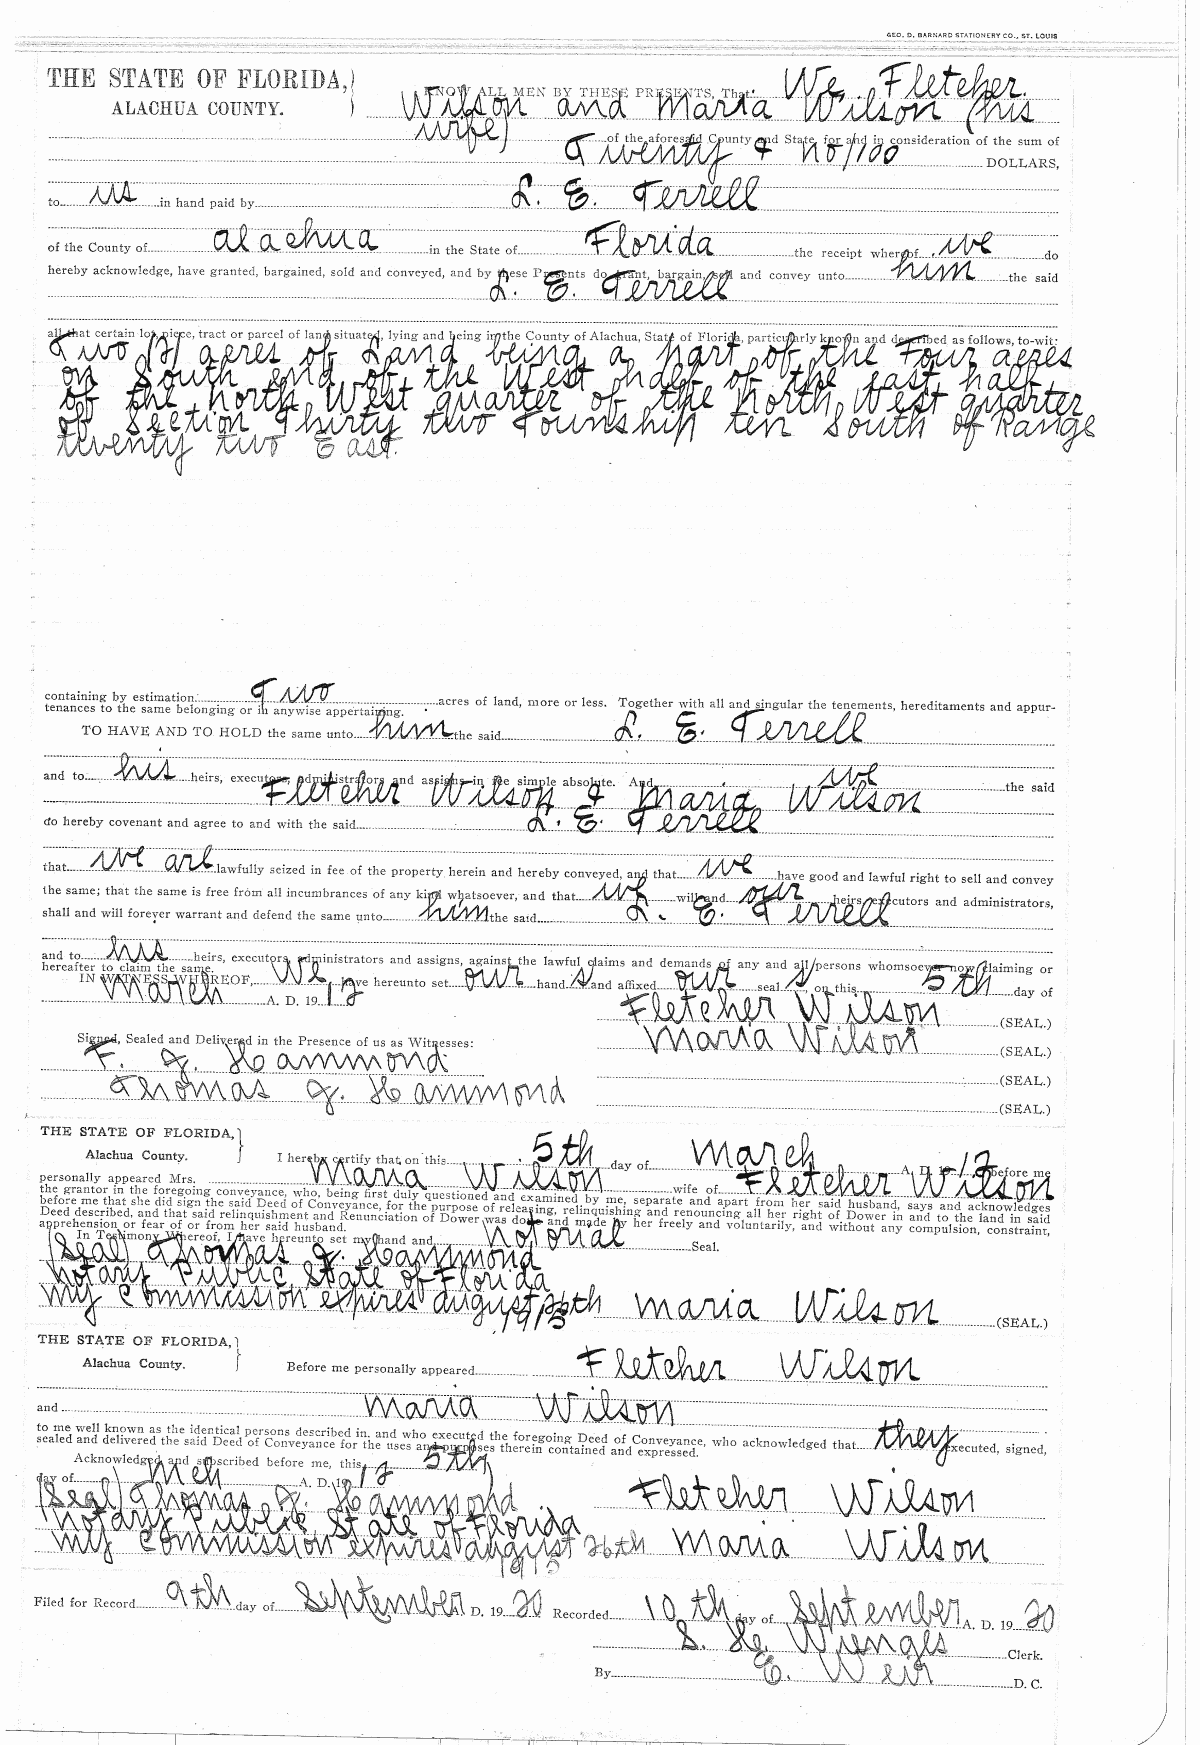 GEO. D. BARNARD STATIONERY CO., ST. LOUIS
THE STATE OF FLORIDA,
ALACHUA COUNTY.
KNOW ALL MEN BY THESE PRESENTS, That We, Fletcher.
Wilson and Maria Wilson (his
wife) of the aforesaid County and State, for and in consideration of the sum of
Twenty & no/100 DOLLARS,
to us in hand paid by L. E. Terrell
of the County of alachua in the State of Florida the receipt whereof we do
hereby acknowledge, have granted, bargained, sold and conveyed, and by these Presents do grant, bargain, sell and convey unto him the said
L. E. Terrell
all that certain lot, piece, tract or parcel of land situated, lying and being in the County of Alachua, State of Florida, particularly known and described as follows, to-wit:
Two (2) acres of Land being a part of the Four acres
on South end of the West half of the east half
of the north West quarter of the North West quarter
of Section Thirty two Township ten South of Range
twenty two East.
containing by estimation Two acres of land, more or less. Together with all and singular the tenements, hereditaments and appur-
tenances to the same belonging or in anywise appertaining.
TO HAVE AND TO HOLD the same unto him the said L. E. Terrell
and to his heirs, executors, administrators and assigns in fee simple absolute. And we the said
Fletcher Wilson & Maria Wilson
do hereby covenant and agree to and with the said L. E. Terrell
that we are lawfully seized in fee of the property herein and hereby conveyed, and that we have good and lawful right to sell and convey
the same; that the same is free from all incumbrances of any kind whatsoever, and that we will and our heirs, executors and administrators,
shall and will forever warrant and defend the same unto him the said L. E. Terrell
and to his heirs, executors, administrators and assigns, against the lawful claims and demands of any and all persons whomsoever now claiming or
hereafter to claim the same.
IN WITNESS WHEREOF, We, have hereunto set our hand s and affixed our seal s on this 5th day of
March A. D. 19 12
Fletcher Wilson (SEAL.)
Signed, Sealed and Delivered in the Presence of us as Witnesses:
Maria Wilson (SEAL.)
F. J. Hammond (SEAL.)
Thomas J. Hammond (SEAL.)
THE STATE OF FLORIDA,
Alachua County.
I hereby certify that on this 5th day of March A. D. 19 12 before me
personally appeared Mrs. Maria Wilson wife of Fletcher Wilson
the grantor in the foregoing conveyance, who, being first duly questioned and examined by me, separate and apart from her said husband, says and acknowledges
before me that she did sign the said Deed of Conveyance, for the purpose of releasing, relinquishing and renouncing all her right of Dower in and to the land in said
Deed described, and that said relinquishment and Renunciation of Dower was done and made by her freely and voluntarily, and without any compulsion, constraint,
apprehension or fear of or from her said husband.
In Testimony Whereof, I have hereunto set my hand and notorial Seal.
(Seal) Thomas J. Hammond
notary Public, State of Florida
my Commission expires august 26th maria Wilson (SEAL.)
THE STATE OF FLORIDA,
Alachua County.
Before me personally appeared Fletcher Wilson
and maria Wilson
to me well known as the identical persons described in, and who executed the foregoing Deed of Conveyance, who acknowledged that they executed, signed,
sealed and delivered the said Deed of Conveyance for the uses and purposes therein contained and expressed.
Acknowledged and subscribed before me, this 5th
day of Mch A. D. 19 12
(Seal) Thomas J. Hammond Fletcher Wilson
notary Public, State of Florida
my Commission expires august 26th maria Wilson
Filed for Record 9th day of September A. D. 19 20 Recorded 10th day of September A. D. 19 20
S. H. Wienges Clerk.
By E. Weir D. C.